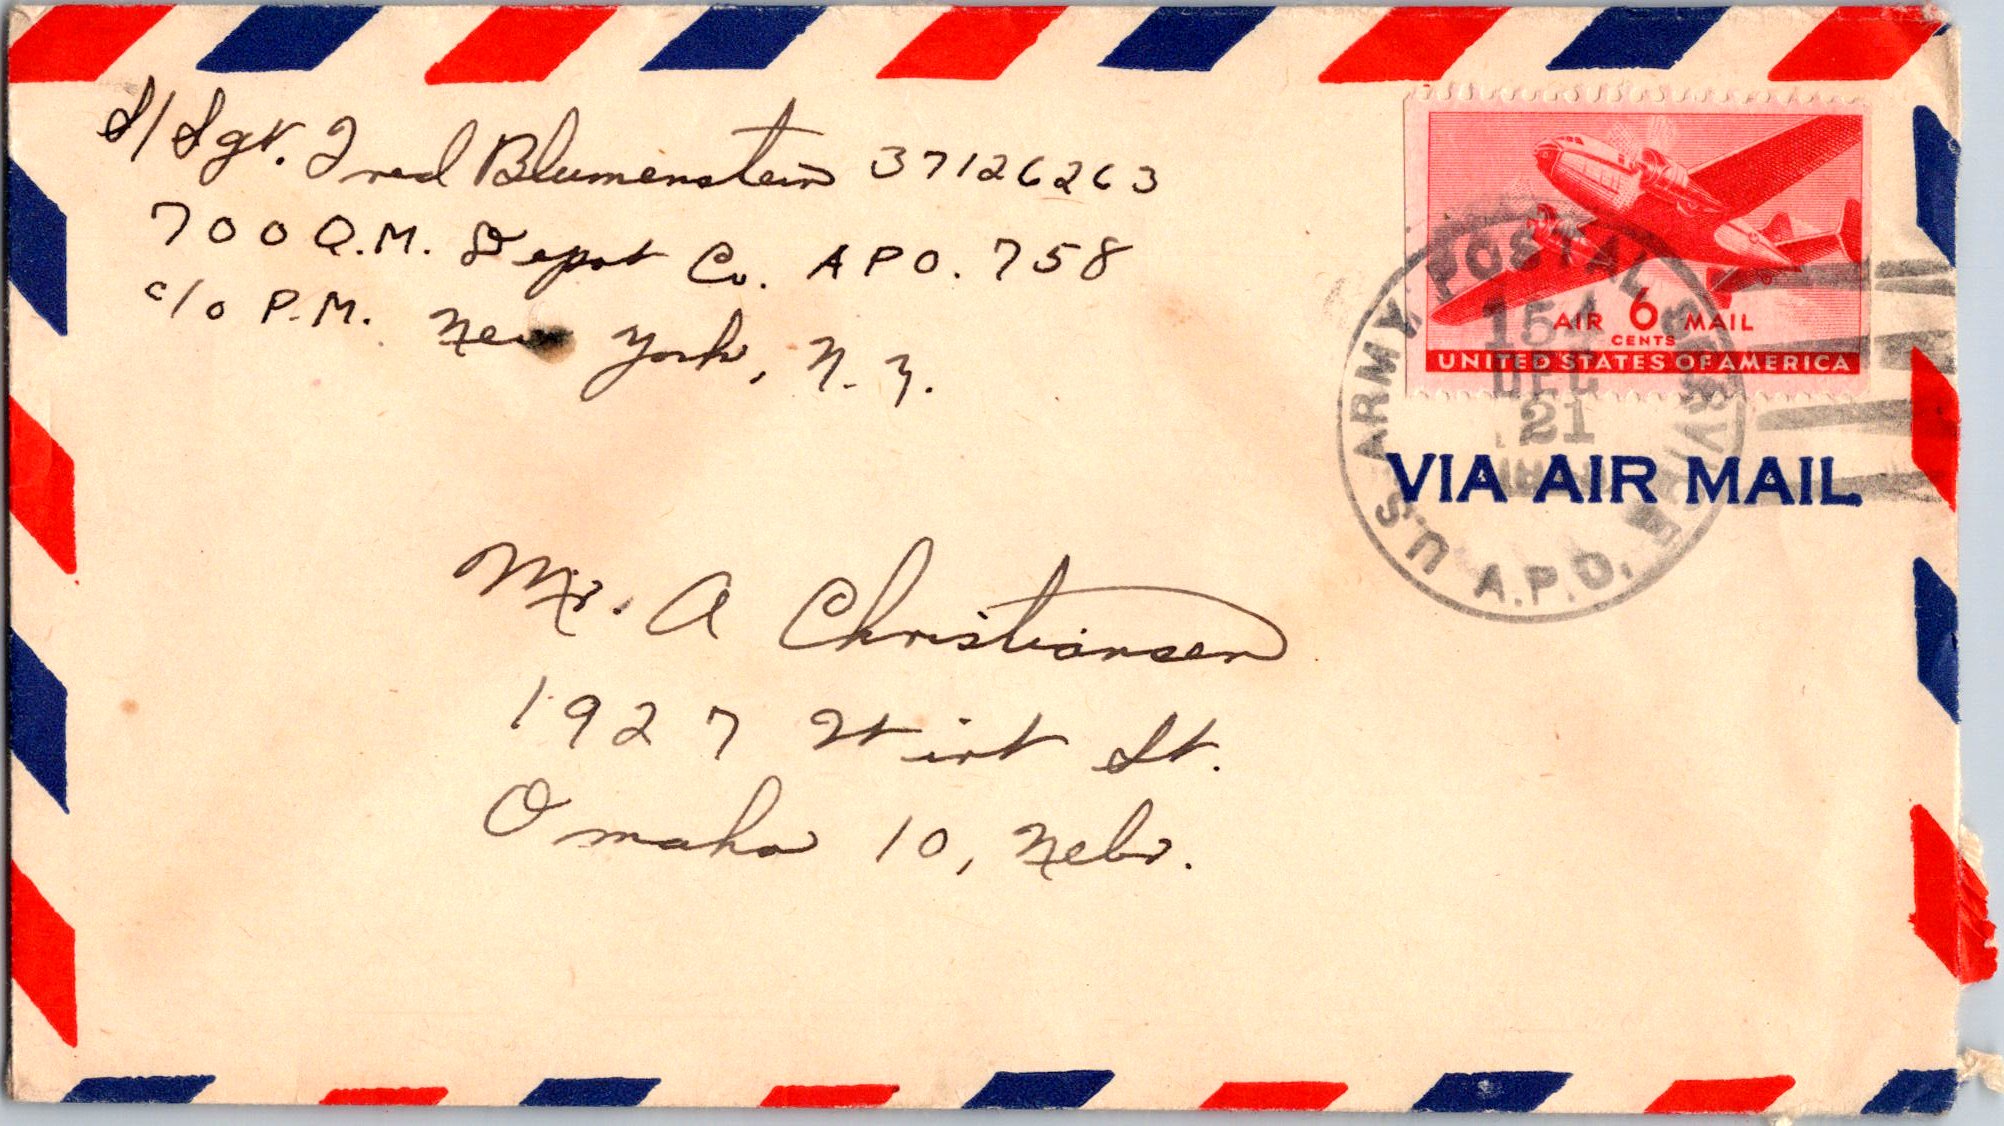 S/Sgt. Fred Blumenstein 37126263
700 Q.M. Depot Co. APO. 758
c/o P.M. New York, N.Y.
AIR 6 MAIL
CENTS
UNITED STATES OF AMERICA
U.S. ARMY POSTAL SERVICE
A.P.O.
154
DEC
21
VIA AIR MAIL
Mr. A Christiansen
1927 Wirt St.
Omaha 10, Nebr.